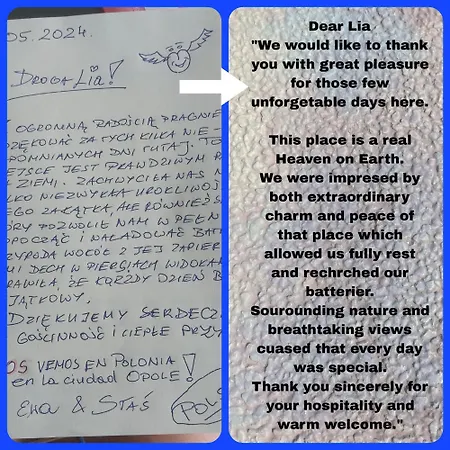 05.2024.
DROGA Lia!
OGROMNĄ RADOŚCIĄ PRAGNIE
ZA TYCH KILKA NIE-
DNI TUTAJ. TO
JEST PRAWDZIWYM R
ZIEMI. ZACHWYCIŁA NAS N
NIEZWYKŁA UROKLIWOŚ
ZAKĄTKA, ALE RÓWNIEŻ S
POZWOLIŁ NAM W PEŁN
I NAŁADOWAĆ BAT
WOKÓŁ Z JEJ ZAPIER
DECH W PIERSIACH WIDOKA
ŻE KAŻDY DZIEŃ B
JĄTKOWY.
DZIĘKUJEMY SERDECZ
GOŚCINNOŚĆ I CIEPŁE PRZY
OS VEMOS EN POLONIA
en la ciudad OPOLE!
EWA & STAŚ
POL
Dear Lia
"We would like to thank
you with great pleasure
for those few
unforgetable days here.
This place is a real
Heaven on Earth.
We were impresed by
both extraordinary
charm and peace of
that place which
allowed us fully rest
and rechrched our
batterier.
Sourounding nature and
breathtaking views
cuased that every day
was special.
Thank you sincerely for
your hospitality and
warm welcome."